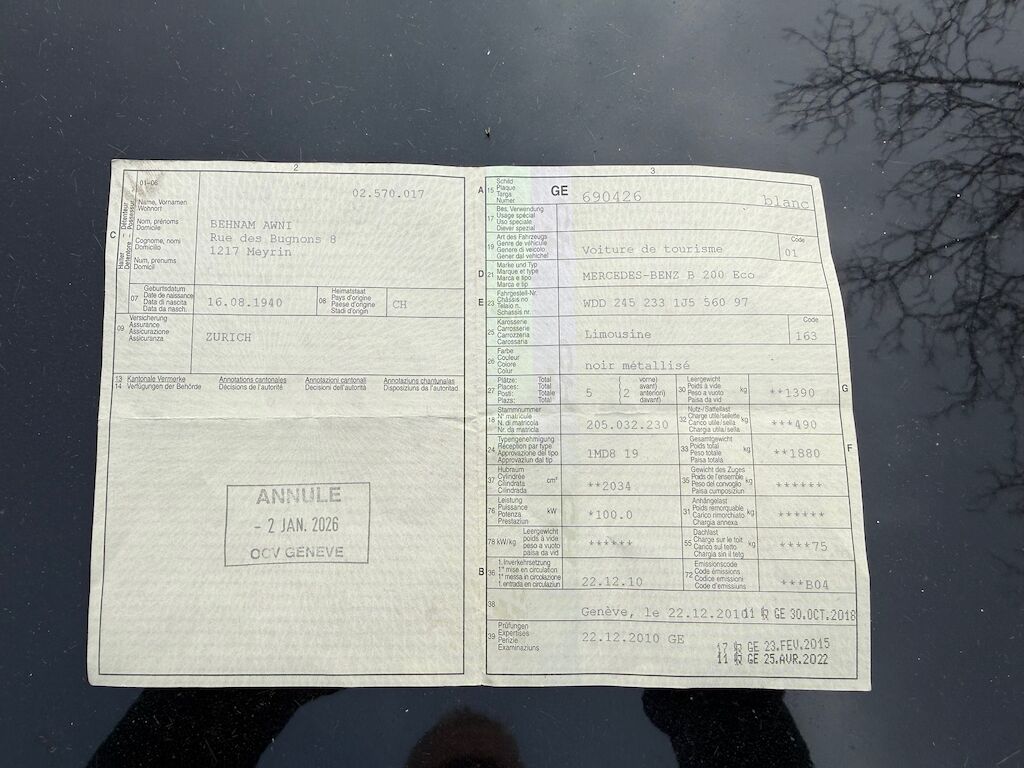 2
01-06
02.570.017
C
Halter Détenteur
Detentore Possessur
Name, Vornamen
Wohnort
Nom, prénoms
Domicile
Cognome, nomi
Domicilio
Num, prenums
Domicil
BEHNAM AWNI
Rue des Bugnons 8
1217 Meyrin
07
Geburtsdatum
Date de naissance
Data di nascita
Data da nasch.
16.08.1940
08
Heimatstaat
Pays d'origine
Paese d'origine
Stadi d'origin
CH
09
Versicherung
Assurance
Assicurazione
Assicuranza
ZURICH
13 Kantonale Vermerke Annotations cantonales Annotazioni cantonali Annotaziuns chantunalas
14 Verfügungen der Behörde Décisions de l'autorité Decisioni dell'autorità Disposiziuns da l'autoritad
ANNULE
- 2 JAN. 2026
OCV GENEVE
3
A 15
Schild
Plaque
Targa
Numer
GE 690426 blanc
17
Bes. Verwendung
Usage spécial
Uso speciale
Diever spezial
19
Art des Fahrzeugs
Genre de véhicule
Genere di veicolo
Gener dal vehichel
Voiture de tourisme
Code
01
D 21
Marke und Typ
Marque et type
Marca e tipo
Marca e tip
MERCEDES-BENZ B 200 Eco
E 23
Fahrgestell-Nr.
Châssis no
Telaio n.
Schassis nr.
WDD 245 233 1J5 560 97
25
Karosserie
Carrosserie
Carrozzeria
Carossaria
Limousine
Code
163
26
Farbe
Couleur
Colore
Colur
noir métallisé
27
Plätze: Total
Places: Total
Posti: Totale
Plazs: Total
5
( vorne)
( avant)
(2 anteriori)
davant)
30
Leergewicht
Poids à vide
Peso a vuoto
Paisa da vid
kg
**1390
G
18
Stammnummer
N° matricule
N. di matricola
Nr. da matricla
205.032.230
32
Nutz-/Sattellast
Charge utile/sellette
Carico utile/sella
Chargia utila/sella
kg
***490
24
Typengenehmigung
Réception par type
Approvazione del tipo
Approvaziun dal tip
1MD8 19
33
Gesamtgewicht
Poids total
Peso totale
Paisa totala
kg
**1880
F
37
Hubraum
Cylindrée
Cilindrata
Cilindrada
cm³
**2034
35
Gewicht des Zuges
Poids de l'ensemble
Peso del convoglio
Paisa cumposiziun
kg
******
76
Leistung
Puissance
Potenza
Prestaziun
kW
*100.0
31
Anhängelast
Poids remorquable
Carico rimorchiato
Chargia annexa
kg
******
78 kW/kg
Leergewicht
poids à vide
peso a vuoto
paisa da vid
******
55
Dachlast
Charge sur le toit
Carico sul tetto
Chargia sin il tetg
kg
****75
B 36
1. Inverkehrsetzung
1re mise en circulation
1a messa in circolazione
1. entrada en circulaziun
22.12.10
72
Emissionscode
Code émissions
Codice emissioni
Code d'emissiuns
***B04
38
Genève, le 22.12.2010
11 GE 30.OCT.2018
39
Prüfungen
Expertises
Perizie
Examinaziuns
22.12.2010 GE
17 GE 23.FEV.2015
11 GE 25.AVR.2022